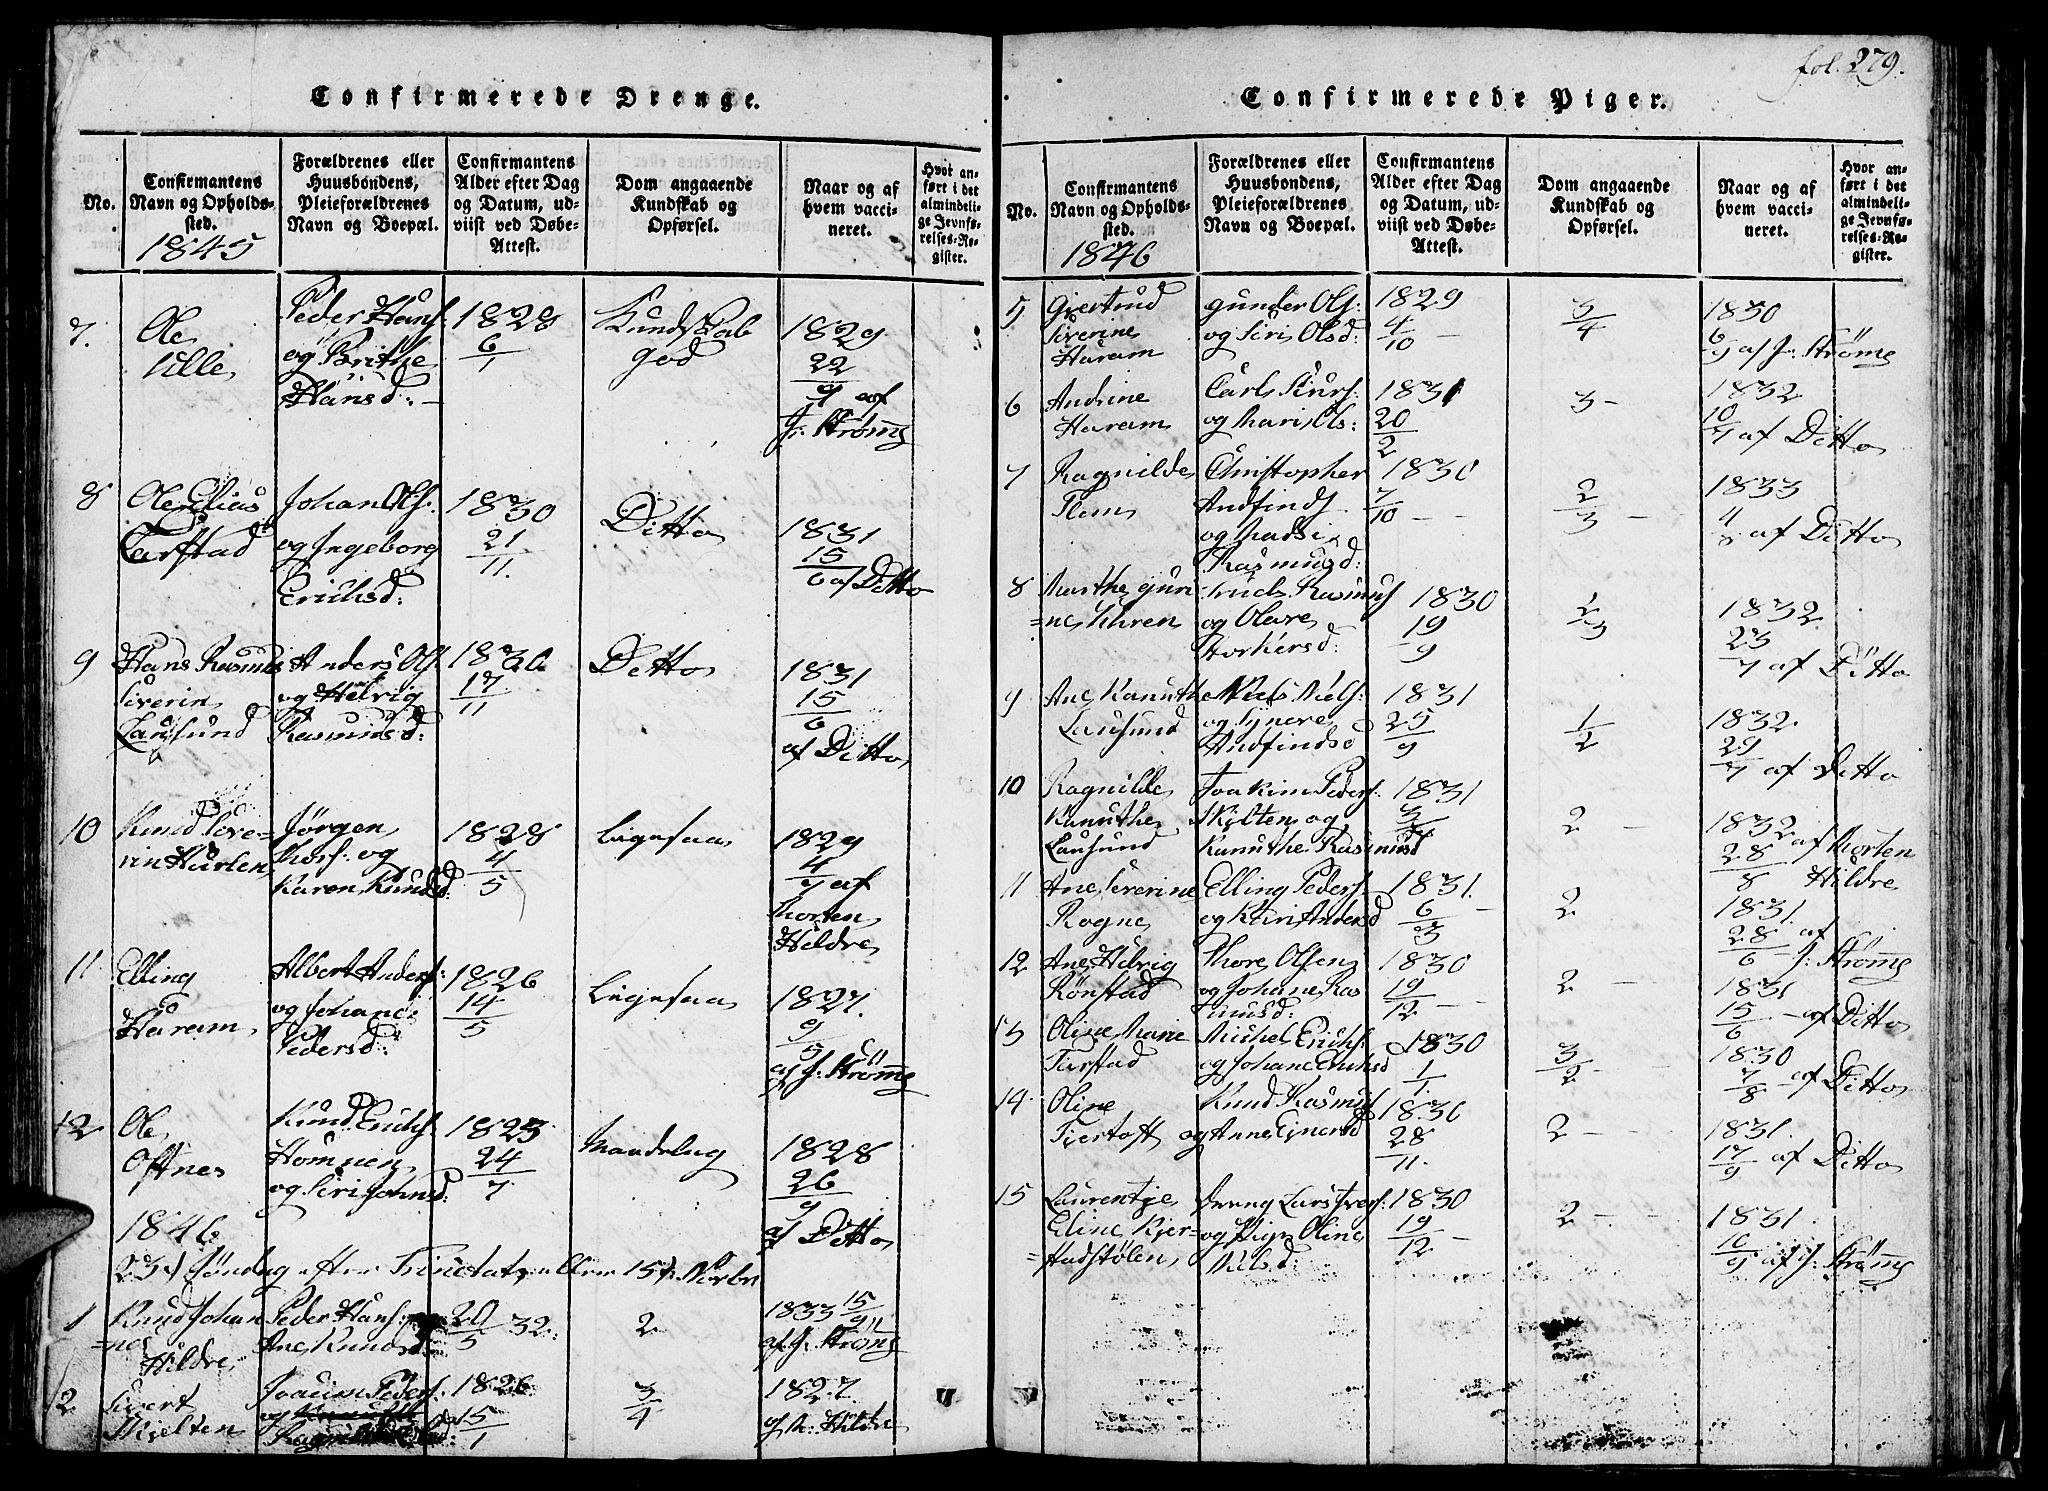 fol. 279.
Confirmerede Drenge.
No.
Confirmantens Navn og Opholdssted.
1845
Forældrenes eller Huusbondens, Pleieforældrenes Navn og Boepæl.
Confirmantens Alder efter Dag og Datum, udviist ved Døbe-Attest.
Dom angaaende Kundskab og Opførsel.
Naar og af hvem vaccineret.
Hvor anført i det almindelige Jevnførelses-Register.
7. Ole
Ulle
Peder Hans:
og Brithe
Hansd:
1828
6/1
Kundskab
god
1829
22/9 af
J: Strømg
8 Ole Elias
Tarstad
Johan Ols:
og Ingeborg
Erichsd:
1830
21/11.
Ditto
1831
15/6 af Ditto
9 Hans Rasmus
Siverin
Lausund
Anders Ols:
og Helvig
Rasmusd:
1830
17/11
Ditto
1831
15/6
af Ditto
10 Knud Seve=
rin Hurlen
Jørgen
og
Karen Knudsd:
1828
4/5
Ligesaa
1829
4/7 af
Morten
Hildre
11 Elling
Haram
Albert Anders:
og Johane
Pedersd:
1826
14/5
Ligesaa
1827.
9/5
af J: Strømg
12 Ole
Oftnes
Knud Erichs:
Homnen
og Siri Johnsd:
1823
24/7
Maadelig
1828
26/9
af Ditto
1846
23de Søndag efter Trinitatis
1 Knud Johan
=nes
Hildre
Peder Hans:
Ane Knudsd
20/5 32:
2
1833 15/9
af J: Strømg
2 Sivert
Skjelten
Joacim Peders:
og
1826
15/1
3/4
1827
af M: Hildre
Confirmerede Piger.
No.
Confirmantens Navn og Opholdssted.
1846
Forældrenes eller Huusbondens, Pleieforældrenes Navn og Boepæl.
Confirmantens Alder efter Dag og Datum, udviist ved Døbe-Attest.
Dom angaaende Kundskab og Opførsel.
Naar og af hvem vaccineret.
Hvor anført i det almindelige Jevnførelses-Register.
5 Gjertrud
Siverine
Haram
Gunder Ols:
og Siri Olsd:
1829
4/10
3/4
1830
6/9 af J: Strømg
6 Andrine
Haram
Carl
og Mari Ols:
1831
20/2
3
1832
10/7 af Ditto
7 Ragnilde
Flem
Christopher
Andfinds
og Madsi
Rasmusd:
1830
7/10
2/3
1833
4 af Ditto
8 Marthe Guri
=ne Uhren
Truels Rasmus
og Olave
Storkersd:
1830
19/9
2/3
1832
23/7 af Ditto
9 Ane Kanuthe
Lausund
Niels Niels:
og Synere
Andfindsd
1831
25/9
1/2
1832
29/7 af Ditto
10 Ragnilde
Kanuthe
Lausund
Joakim Peders:
Skilten og
Kanuthe Rasmusd
1831
2
1832
28/8 af Morten
Hildre
11 Ane Severine
Rogne
Elling Peders:
og Andersd
1831.
6/3
2
1831.
28/6 af
J: Strømg
12 Ane Helvig
Rønstad
Thore Olsen
og Johane Ras
musd:
1830
19/12
2
1831
15/6 af Ditto
13 Oline Marie
Tarstad
Michel Erichs:
og Johane Erichsd
1830
1/1
3/2
1830
7/8 af Ditto
14 Oline
Fjertoft
Knud Rasmus
og Anne Ejnersd
1830
28/11.
2
1831.
17/9 af Ditto
15 Laurentje
Eline Kjer=
=stadstølen
Dreng Lars Ivers:
og Pige Oline
Nielsd:
1830
19/12
2
1831.
10/9 af J: Strømg